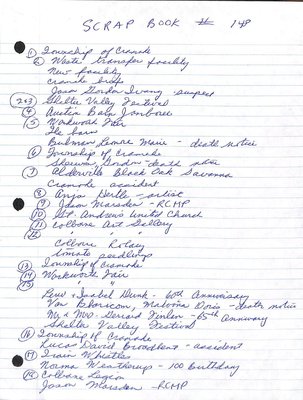 SCRAP BOOK # 148
① Township of Cramahe
② Waste transfer facility
New facility
cramahe briefs
Jason Gordon Irving - suspect
2&3 Shelter Valley Festival
④ Austin Baba Jamboree
⑤ Warkworth Fair
The barn
Bulman Lenore Marie - death notice
⑥ Township of Cramahe
Shearer, Gordon - death notice
⑦ Alderville Black Oak Savanna
Cramahe accident
⑧ Anja Hertle - artist
⑨ Jason Marsden - RCMP
⑩ St. Andrew's United Church
⑪ Colborne Art Gallery
⑫ " " "
Colborne Rotary
tomato seedlings
⑬ Township of Cramahe
⑭ Warkworth Fair
⑮ " "
Lew & Isabel Dunk - 60th Anniversary
Doris - death notice
Mr & Mrs. Gerrard Finlan - 65th Anniversary
Shelter Valley Festival
⑯ Township of Cramahe
Lucas David Broadbent - accident
⑰ Train Whistles
Norma Weatherup - 100 birthday
⑱ Colborne Legion
Jason Marsden - RCMP